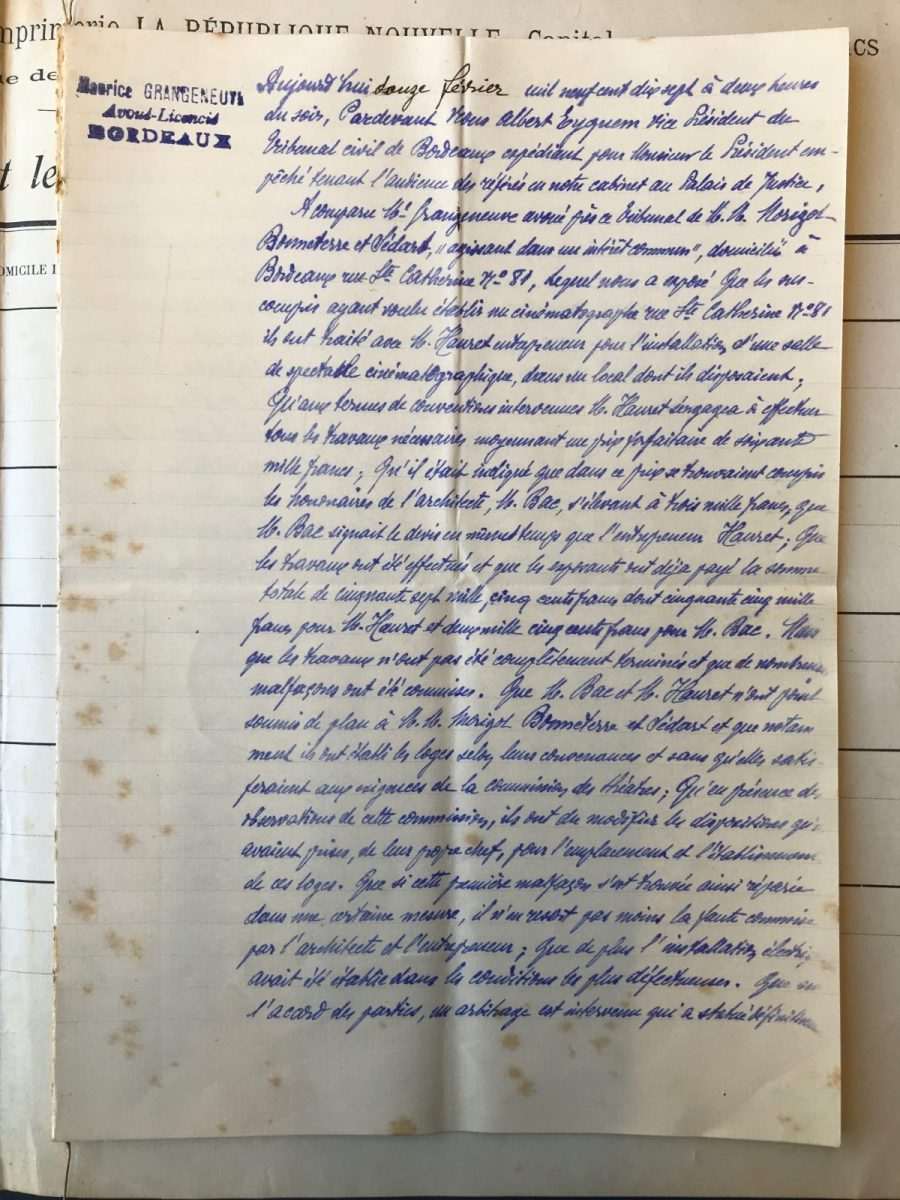 LA RÉPUBLIQUE NOUVELLE
Maurice GRANGENEUVE
Avoué-Licencié
BORDEAUX
Aujourd'hui douze février mil neuf cent dix sept à deux heures
du soir, Pardevant Nous Albert Eyquem Vice Président du
Tribunal civil de Bordeaux expédiant pour Monsieur le Président em-
pêché tenant l'audience des référés en notre cabinet au Palais de Justice,
A comparu Me Grangeneuve avoué près ce Tribunal de M.M. Morigot
Bonneterre et Sédart, "agissant dans un intérêt commun", domiciliés à
Bordeaux rue Ste Catherine No 81, Lequel nous a exposé Que les sus-
ayant voulu établir un cinématographe rue Ste Catherine No 81
ils ont traité avec M. Hauret entrepreneur pour l'installation d'une salle
de spectacle cinématographique, dans un local dont ils disposaient;
Qu'aux termes de conventions intervenues M. Hauret s'engagea à effectuer
tous les travaux nécessaires moyennant un prix forfaitaire de soixante
mille francs; Qu'il était indiqué que dans ce prix se trouvaient compris
les honoraires de l'architecte, M. Bac, s'élevant à trois mille francs, que
M. Bac signait le devis en même temps que l'entrepreneur Hauret; Que
les travaux ont été effectués et que les exposants ont déja payé la somme
totale de cinquante sept mille cinq cents francs dont cinquante cinq mille
francs pour M. Hauret et deux mille cinq cents francs pour M. Bac. Mais
que les travaux n'ont pas été complètement terminés et que de nombreuses
malfaçons ont été commises. Que M. Bac et M. Hauret n'ont point
soumis de plan à M.M. Morigot Bonneterre et Sédart et que notam
ment ils ont établi les loges selon leurs convenances et sans qu'elles satis-
feraient aux exigences de la commission des théatres; Qu'en présence des
observations de cette commission, ils ont du modifier les dispositions qu'ils
avaient prises, de leur propre chef, pour l'emplacement et l'établissement
de ces loges. Que si cette première malfaçon s'est trouvée ainsi réparée
dans une certaine mesure, il n'en resort pas moins la faute commise
par l'architecte et l'entrepreneur; Que de plus l'installation
avait été établie dans les conditions les plus défectueuses. Que
l'accord des parties, un arbitrage est intervenu qui a statué